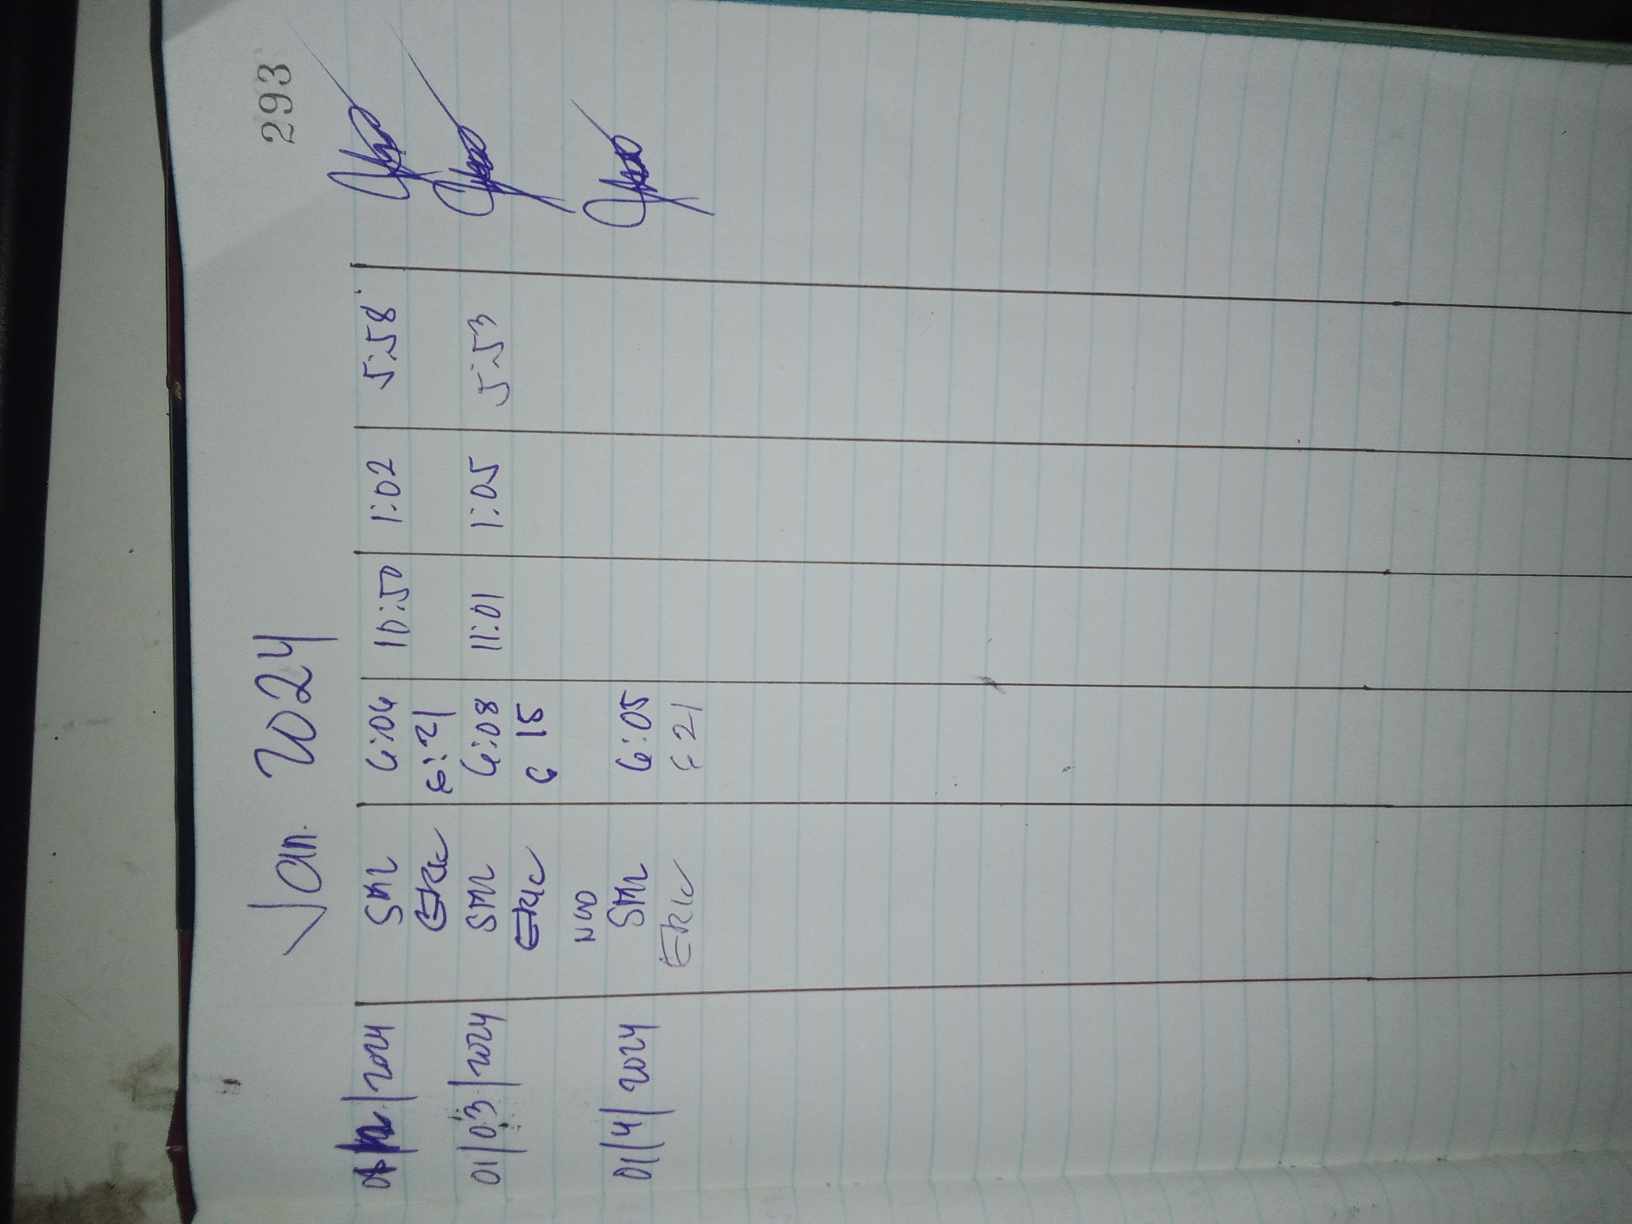 293
Jan. 2024
/2024 SML 6:04 10:50 1:02 5:58
ERIC 6:21
01/03/2024 SML 6:08 11:01 1:05 5:53
ERIC 6 15
01/4/2024 SML 6:05
ERIC 6:21